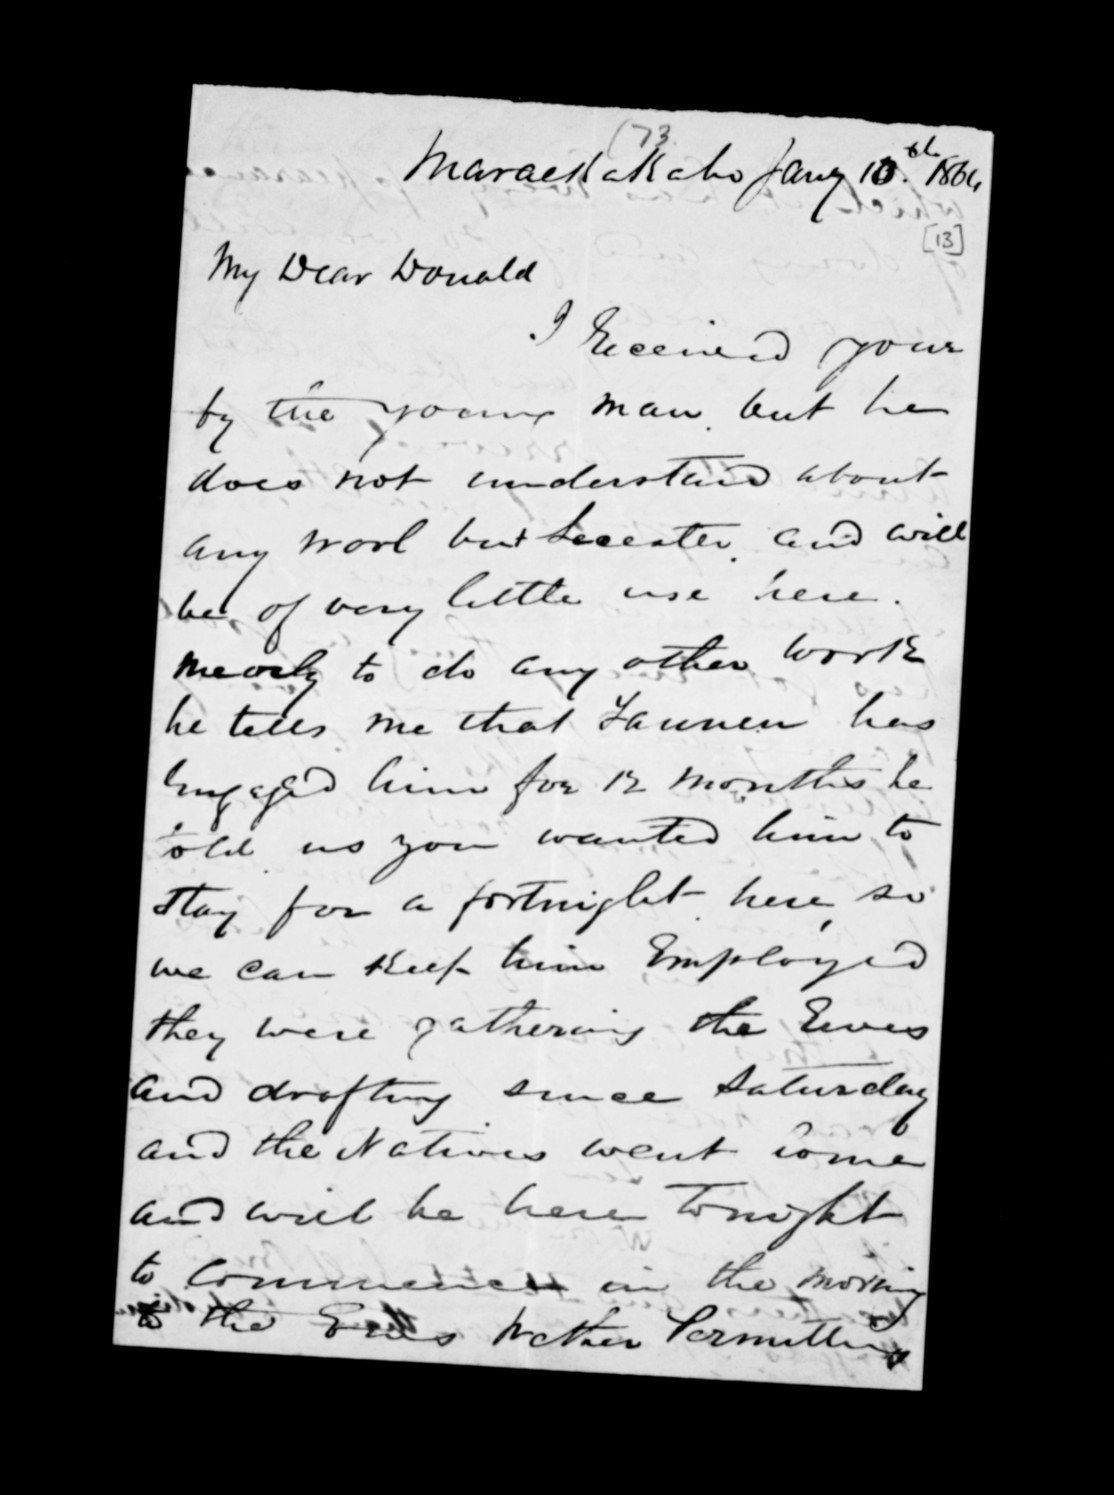 (73
MaraeKaKaho Jany 13th 1864
[13]
My Dear Donald
I Received your
by the young man but he
does not understand about
any wool but Leecester and will
be of very little use here.
to do any other work
he tells me that Tannen has
Engaged him for 12 months he
told us you wanted him to
stay for a fortnight here, so
we can Keep him Employed
they were gathering the Ewes
and drafting since Saturday
and the Natives went home
and will be here Tonight
to Commence in the morning
to the Ewes Wether Permitting